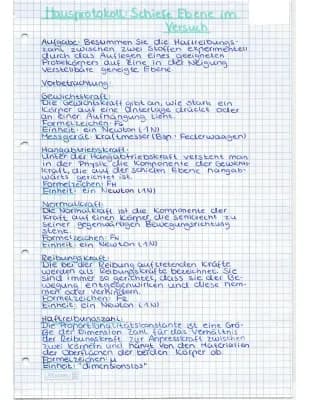 Hausprotokoll Schiefe Ebene im
Versuch
Aufgabe: Bestimmen Sie die Haftreibungs-
zahl zwischen zwei Stoffen experimentell
durch das Aufliegen eines geeigneten
Probekörpers auf eine in der Neigung
verstellbare geneigte Ebene
Vorbetrachtung:
Gewichtskraft:
Die Gewichtskraft gibt an, wie stark ein
Körper auf eine Unterlage drückt oder
an einer Aufhängung zieht.
Formelzeichen: FG
Einheit: ein Newton (1N)
Messgerät: Kraftmesser (Bsp. Federwaagen)
Hangabtriebskraft:
Unter der Hangabtriebskraft versteht man
in der Physik die Komponente der Gewichts-
kraft, die auf der schiefen Ebene hangab-
wärts gerichtet ist.
Formelzeichen: FH
Einheit: ein Newton (1N)
Normalkraft:
Die Normalkraft ist die Komponente der
Kraft auf einen Körper, die senkrecht zu
seiner gegenwärtigen Bewegungsrichtung
steht.
Formelzeichen: FN
Einheit: ein Newton (1N)
Reibungskraft:
Die bei der Reibung auftretenden Kräfte
werden als Reibungskräfte bezeichnet. Sie
sind immer so gerichtet, dass sie der Be-
wegung entgegenwirken und diese hem-
men oder verhindern.
Formelzeichen: FR
Einheit: ein Newton (1N)
Haftreibungszahl:
Die Proportionalitätskonstante ist eine Grö-
ße der Dimension Zahl für das Verhältnis
der Reibungskraft zur Anpresskraft zwischen
zwei Körpern und hängt von den Materialien
der Oberflächen der beiden Körper ab.
Formelzeichen: µ
Einheit: "dimensionslos"